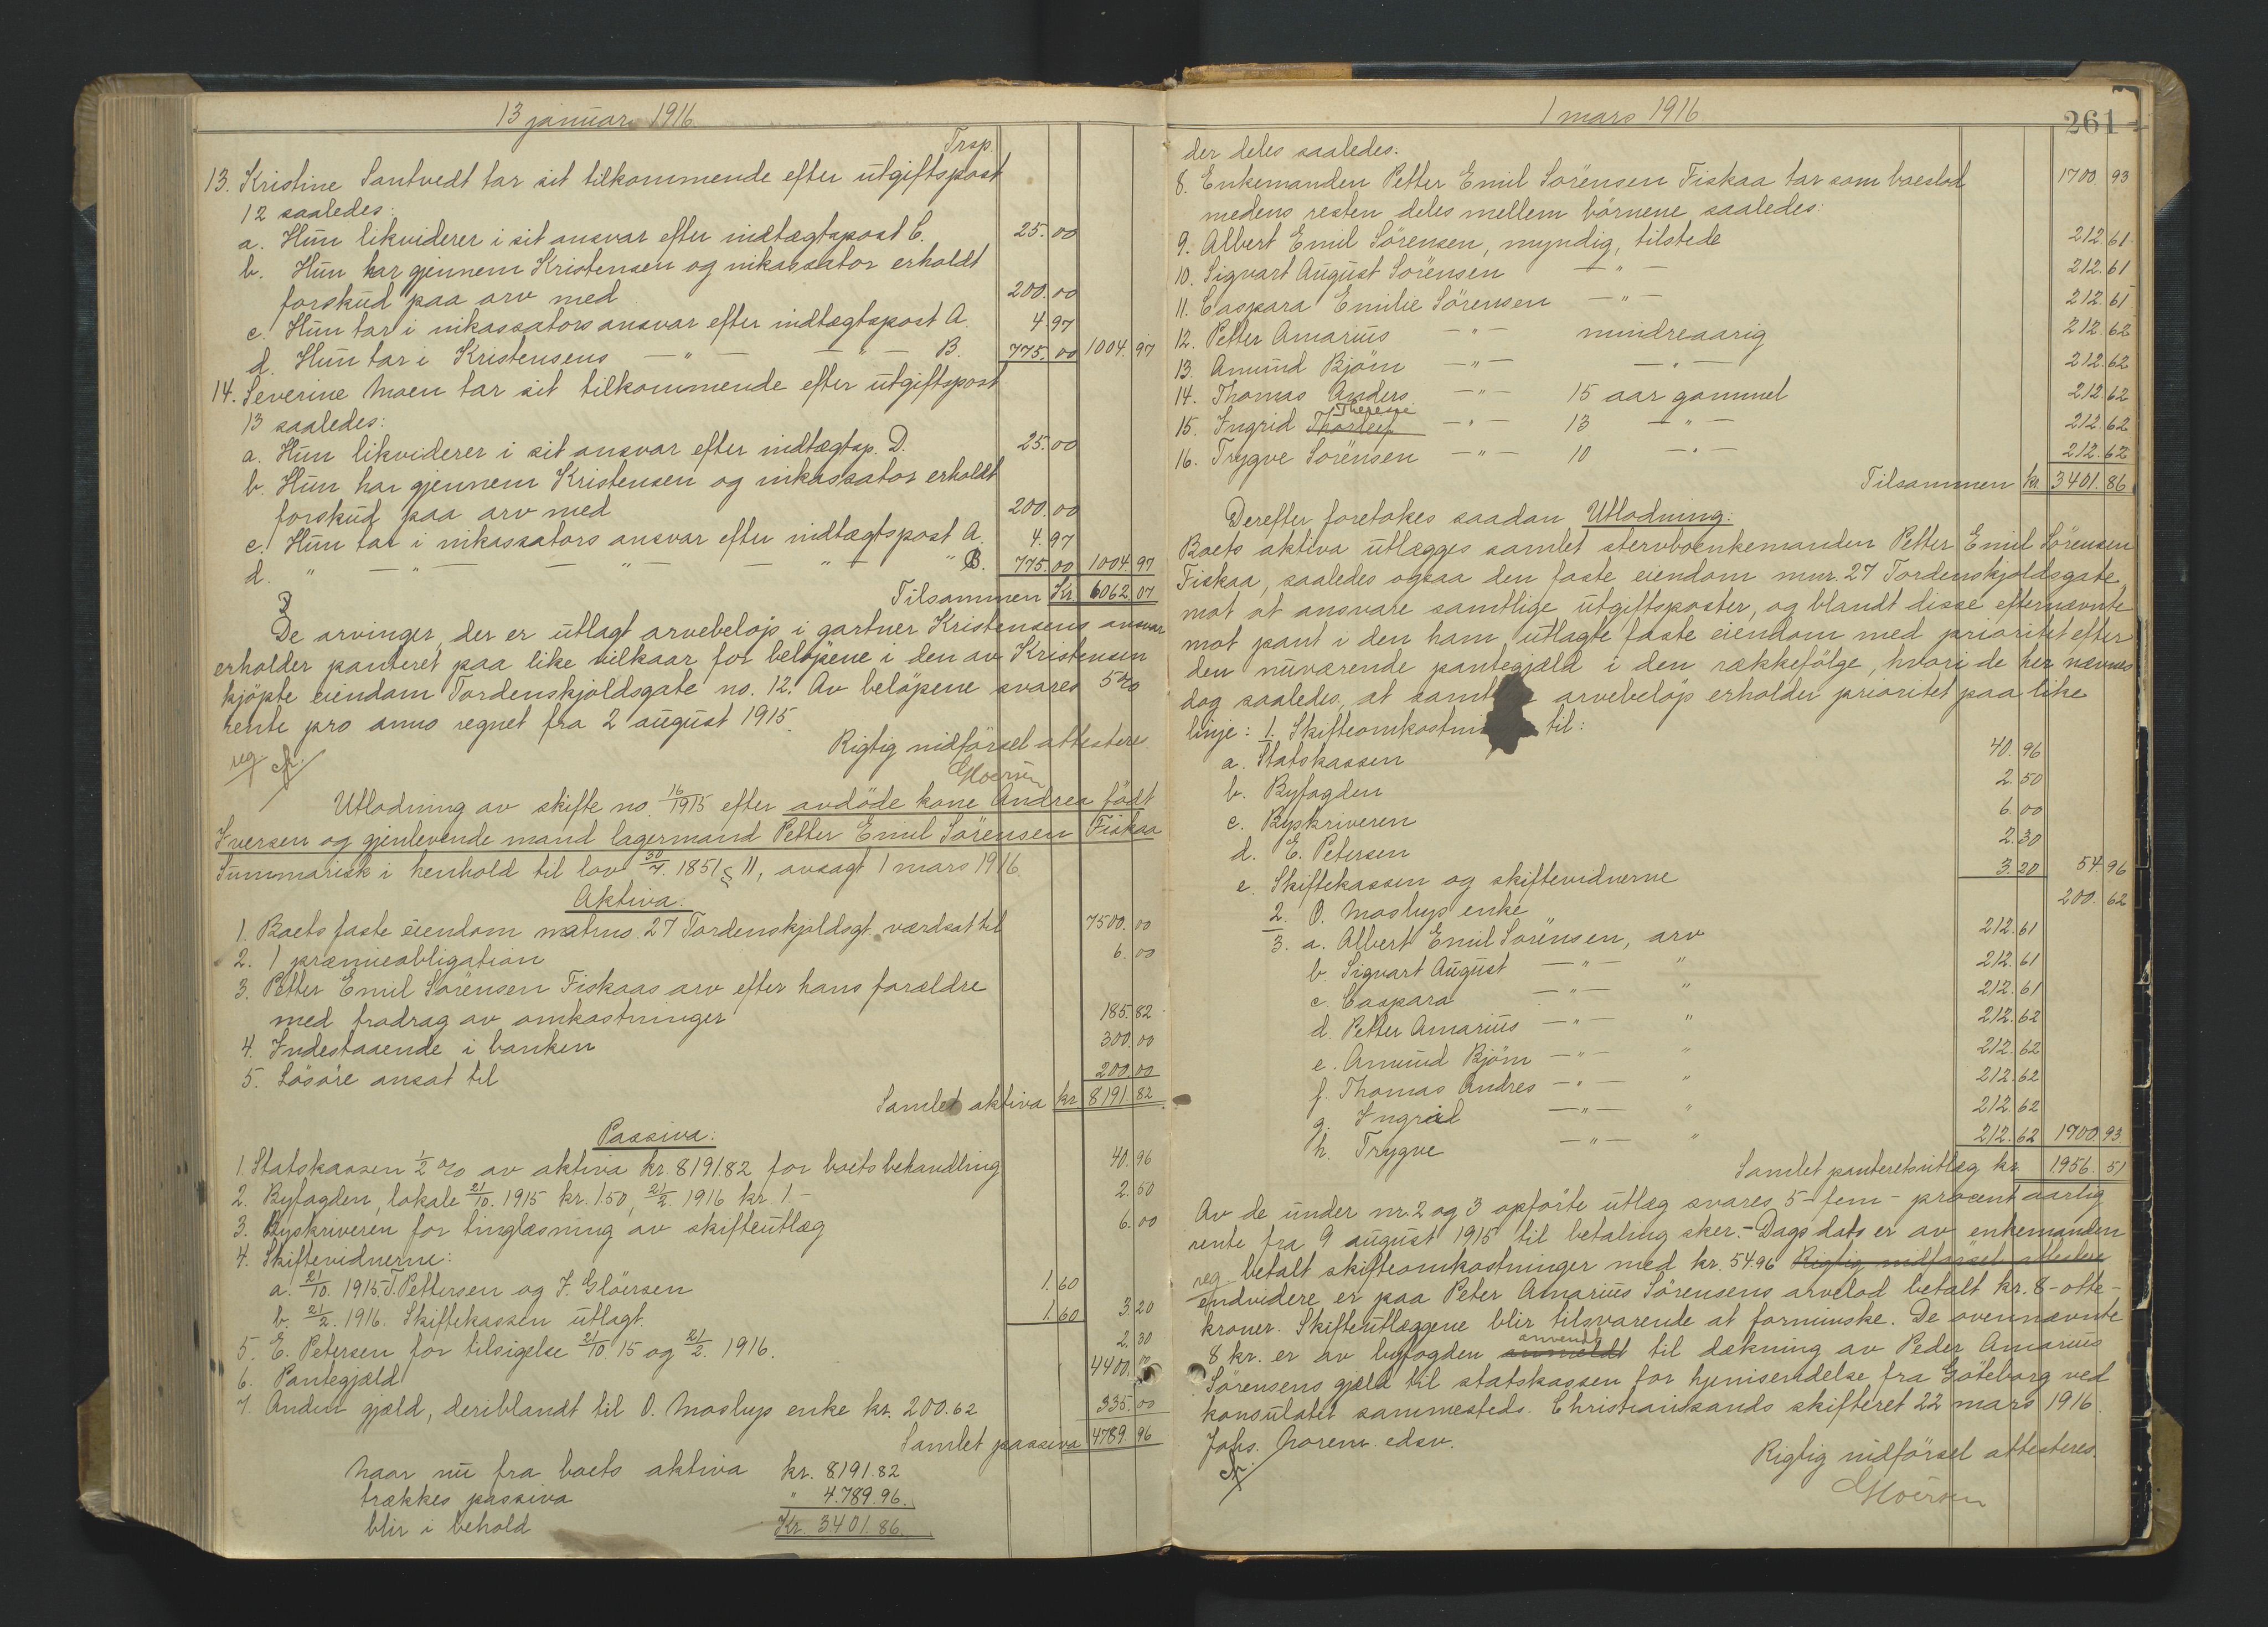 13 januar 1916.
Trsp.
13. Kristine Santvedt tar sit tilkommende efter utgiftspost
12 saaledes:
a. Hun likviderer i sit ansvar efter indtægtspost C. 25.00
b. Hun har gjennem Kristensen og inkassator erholdt
forskud paa arv med 200.00
c. Hun tar i inkassators ansvar efter indtægtspost A. 4.97
d. Hun tar i Kristensens — " — — " — B. 775.00 1004.97
14. Severine Moen tar sit tilkommende efter utgiftspost
13 saaledes:
a. Hun likviderer i sit ansvar efter indtægtsp. D. 25.00
b. Hun har gjennem Kristensen og inkassator erholdt
forskud paa arv med 200.00
c. Hun tar i inkassators ansvar efter indtægtspost A. 4.97
d. " — " — — " — — " — " B. 775.00 1004.97
Tilsammen Kr. 6062.07
De arvinger, der er utlagt arvebeløp i gartner Kristensens ansvar
erholder panteret paa like vilkaar for beløpene i den av Kristensen
kjöpte eiendom Tordenskjoldsgate no. 12. Av belöpene svares 5%
rente pro anno regnet fra 2 august 1915.
Rigtig indförsel attesteres
reg
Utlodning av skifte no. 16/1915 efter avdöde kone Andrea födt
Iversen og gjenlevende mand lagermand Petter Emil Sörensen Fiskaa
Summarisk i henhold til lov 30/7. 1851 § 11, avsagt 1 mars 1916.
Aktiva:
1. Boets faste eiendom matrno. 27 Tordenskjoldsgt. værdsat til 7500.00
2. 1 præmieobligation 6.00
3. Petter Emil Sörensen Fiskaas arv efter hans forældre
med fradrag av omkostninger 185.82
4. Indestaaende i banken 300.00
5. Lösöre ansat til 200.00
Samlet aktiva kr 8191.82
Passiva:
1. Statskassen ½ % av aktiva kr 8191.82 for boets behandling 40.96
2. Byfogden, lokale 21/10. 1915 kr. 1.50, 21/2 1916 kr. 1.- 2.50
3. Byskriveren for tinglæsning av skifteutlæg 6.00
4. Skiftevidnerne:
a. 21/10. 1915. T. Pettersen og J. Glöersen 1.60
b. 21/2. 1916. Skiftekassen utlagt. 1.60 3.20
5. E. Petersen for tilsigelse 21/10. 15 og 21/2. 1916. 2.30
6. Pantegjæld 4400.00
7. Anden gjæld, deriblandt til O. Moslups enke kr. 200.62 335.00
Samlet passiva 4789.96
Naar nu fra boets aktiva kr. 8191.82
trækkes passiva " 4.789.96.
blir i behold Kr. 3401.86.
1 mars 1916
261
der deles saaledes:
8. Enkemanden Petter Emil Sörensen Fiskaa tar som boeslod 1700.93
medens resten deles mellem börnene saaledes:
9. Albert Emil Sörensen, myndig, tilstede 212.61
10. Sigvart August Sörensen — " — 212.61
11. Caspara Emilie Sörensen — " — 212.61
12. Petter Amarius — " — mindreaarig 212.62
13. Amund Bjöm — " — — " — 212.62
14. Thomas Anders — " — 15 aar gammel 212.62
Therese
15. Ingrid Thorleif — " — 13 — " — 212.62
16. Trygve Sörensen — " — 10 — " — 212.62
Tilsammen kr. 3401.86
Derefter foretokes saadan Utlodning:
Boets aktiva utlægges samlet stervboenkemanden Petter Emil Sörensen
Fiskaa, saaledes ogsaa den faste eiendom mnr. 27 Tordenskjoldsgate,
mot at ansvare samtlige utgiftsposter, og blandt disse efternævnte
mot pant i den ham utlagte faste eiendom med prioritet efter
den nuværende pantegjæld i den rækkefölge, hvori de her nævnes
dog saaledes, at samt e arvebelöp erholder prioritet paa like
linje: 1. Skifteomkostni til:
a. Statskassen 40.96
b. Byfogden 2.50
c. Byskriveren 6.00
d. E. Petersen 2.30
e. Skiftekassen og skiftevidnerne 3.20 54.96
2. O. Moslups enke 200.62
3. a. Albert Emil Sörensen, arv 212.61
b. Sigvart August — " — " 212.61
c. Caspara — " — " 212.61
d. Petter Amarius — " — " 212.62
e. Amund Bjöm — " — " 212.62
f. Thomas Andres — " — " 212.62
g. Ingrid — " — " 212.62
h. Trygve — " — " 212.62 1700.93
Samlet panteretsutlæg kr. 1956.51
Av de under nr. 2 og 3 opförte utlæg svares 5 - fem - procent aarlig
rente fra 9 august 1915 til betaling sker. - Dags dato er av enkemanden
reg betalt skifteomkostninger med kr. 54.96 Rigtig indförsel attestere
endvidere er paa Peter Amarius Sörensens arvelod betalt kr. 8 - otte -
kroner. Skifteutlæggene blir tilsvarende at forminske. De ovennævnte
anvendt
8 kr. er av byfogden anmeldt til dækning av Peder Amarius
Sörensens gjæld til statskassen for hjemsendelse fra Göteborg ved
konsulatet sammesteds. Christianssands skifteret 22 mars 1916.
Johs. Norem edsv.
Rigtig indförsel attesteres.